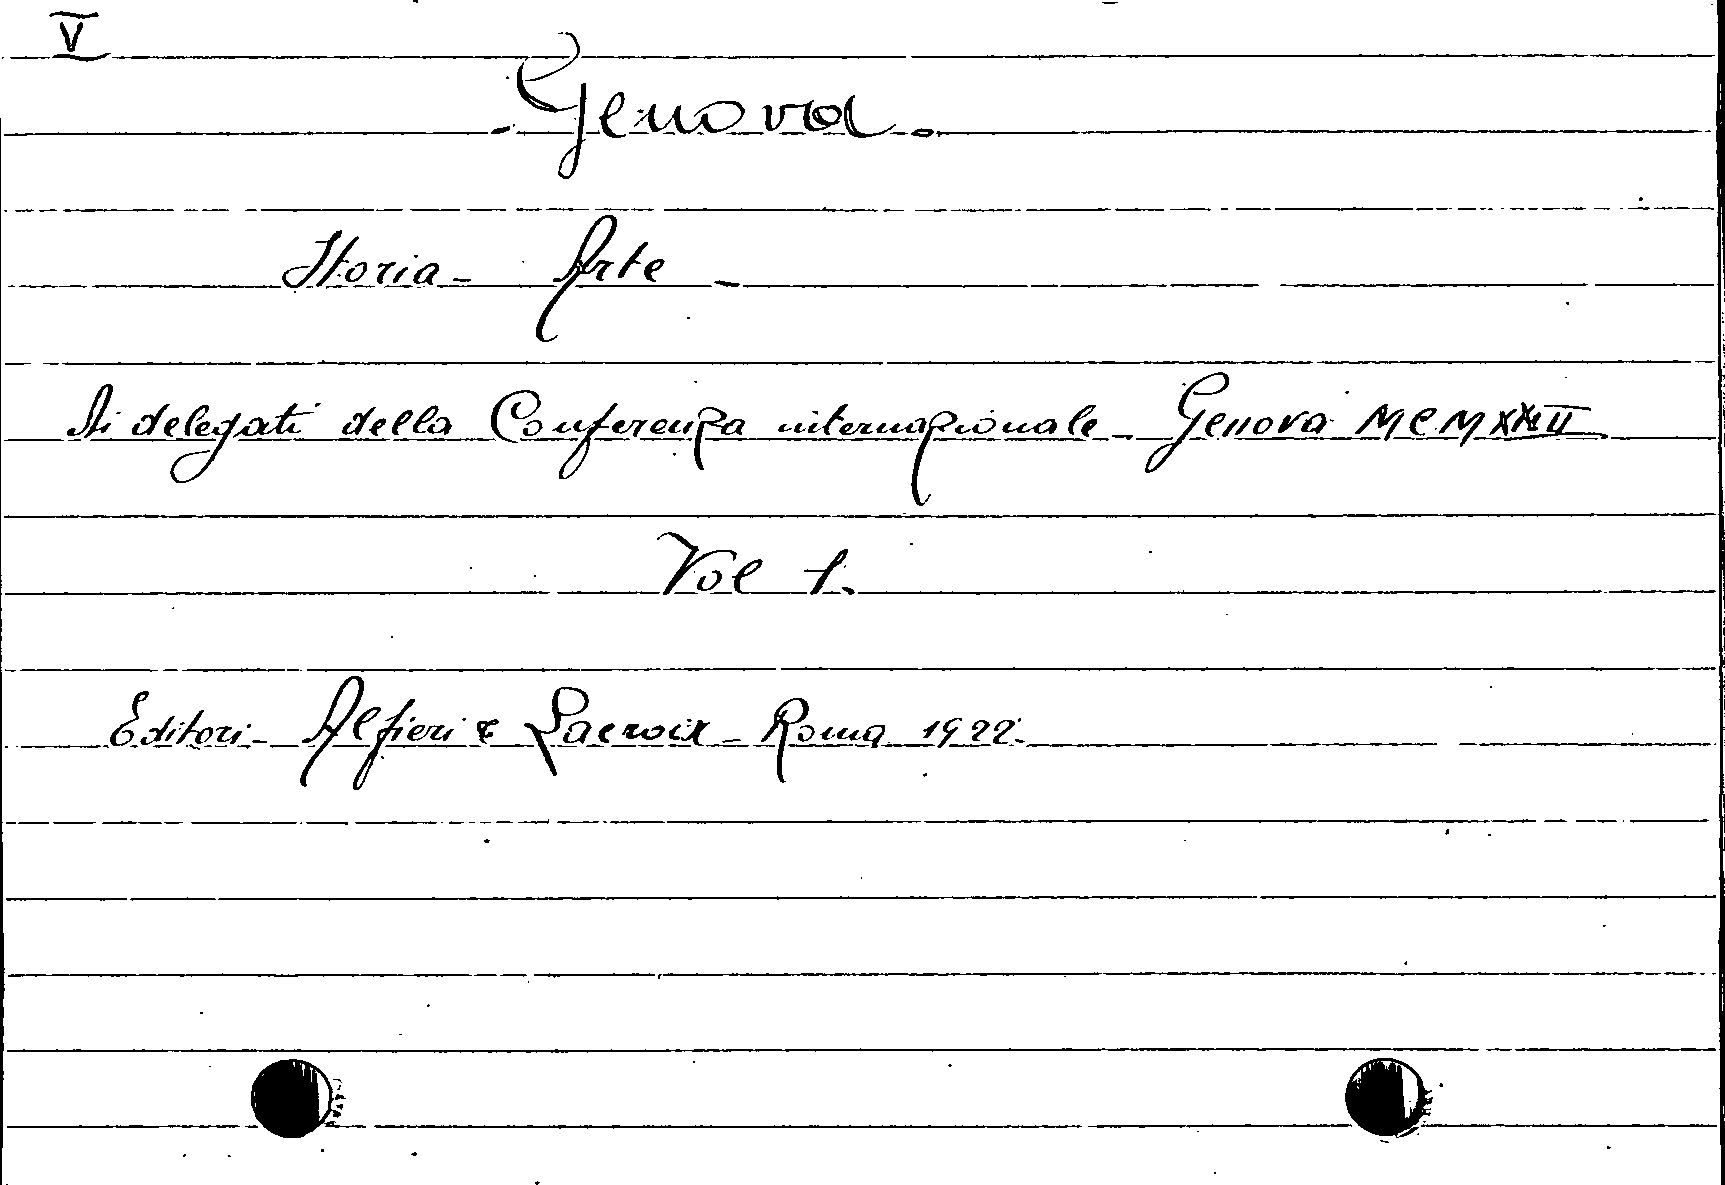 V
- Genova -
Storia - Arte -
Ai delegati della Conferenza internazionale - Genova MCMXXII
Vol 1.
Editori - Alfieri & Lacroix - Roma 1922.